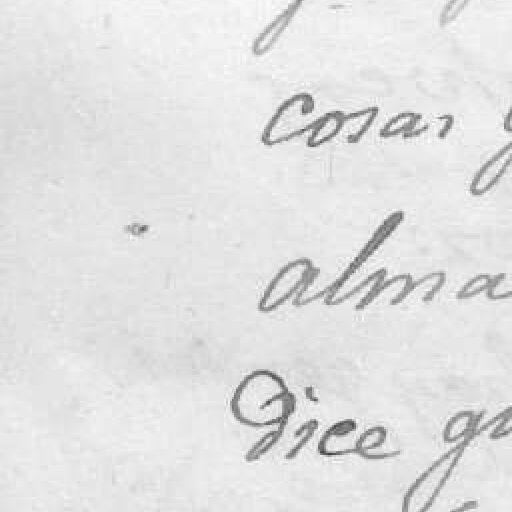 cosas
alma
Dice